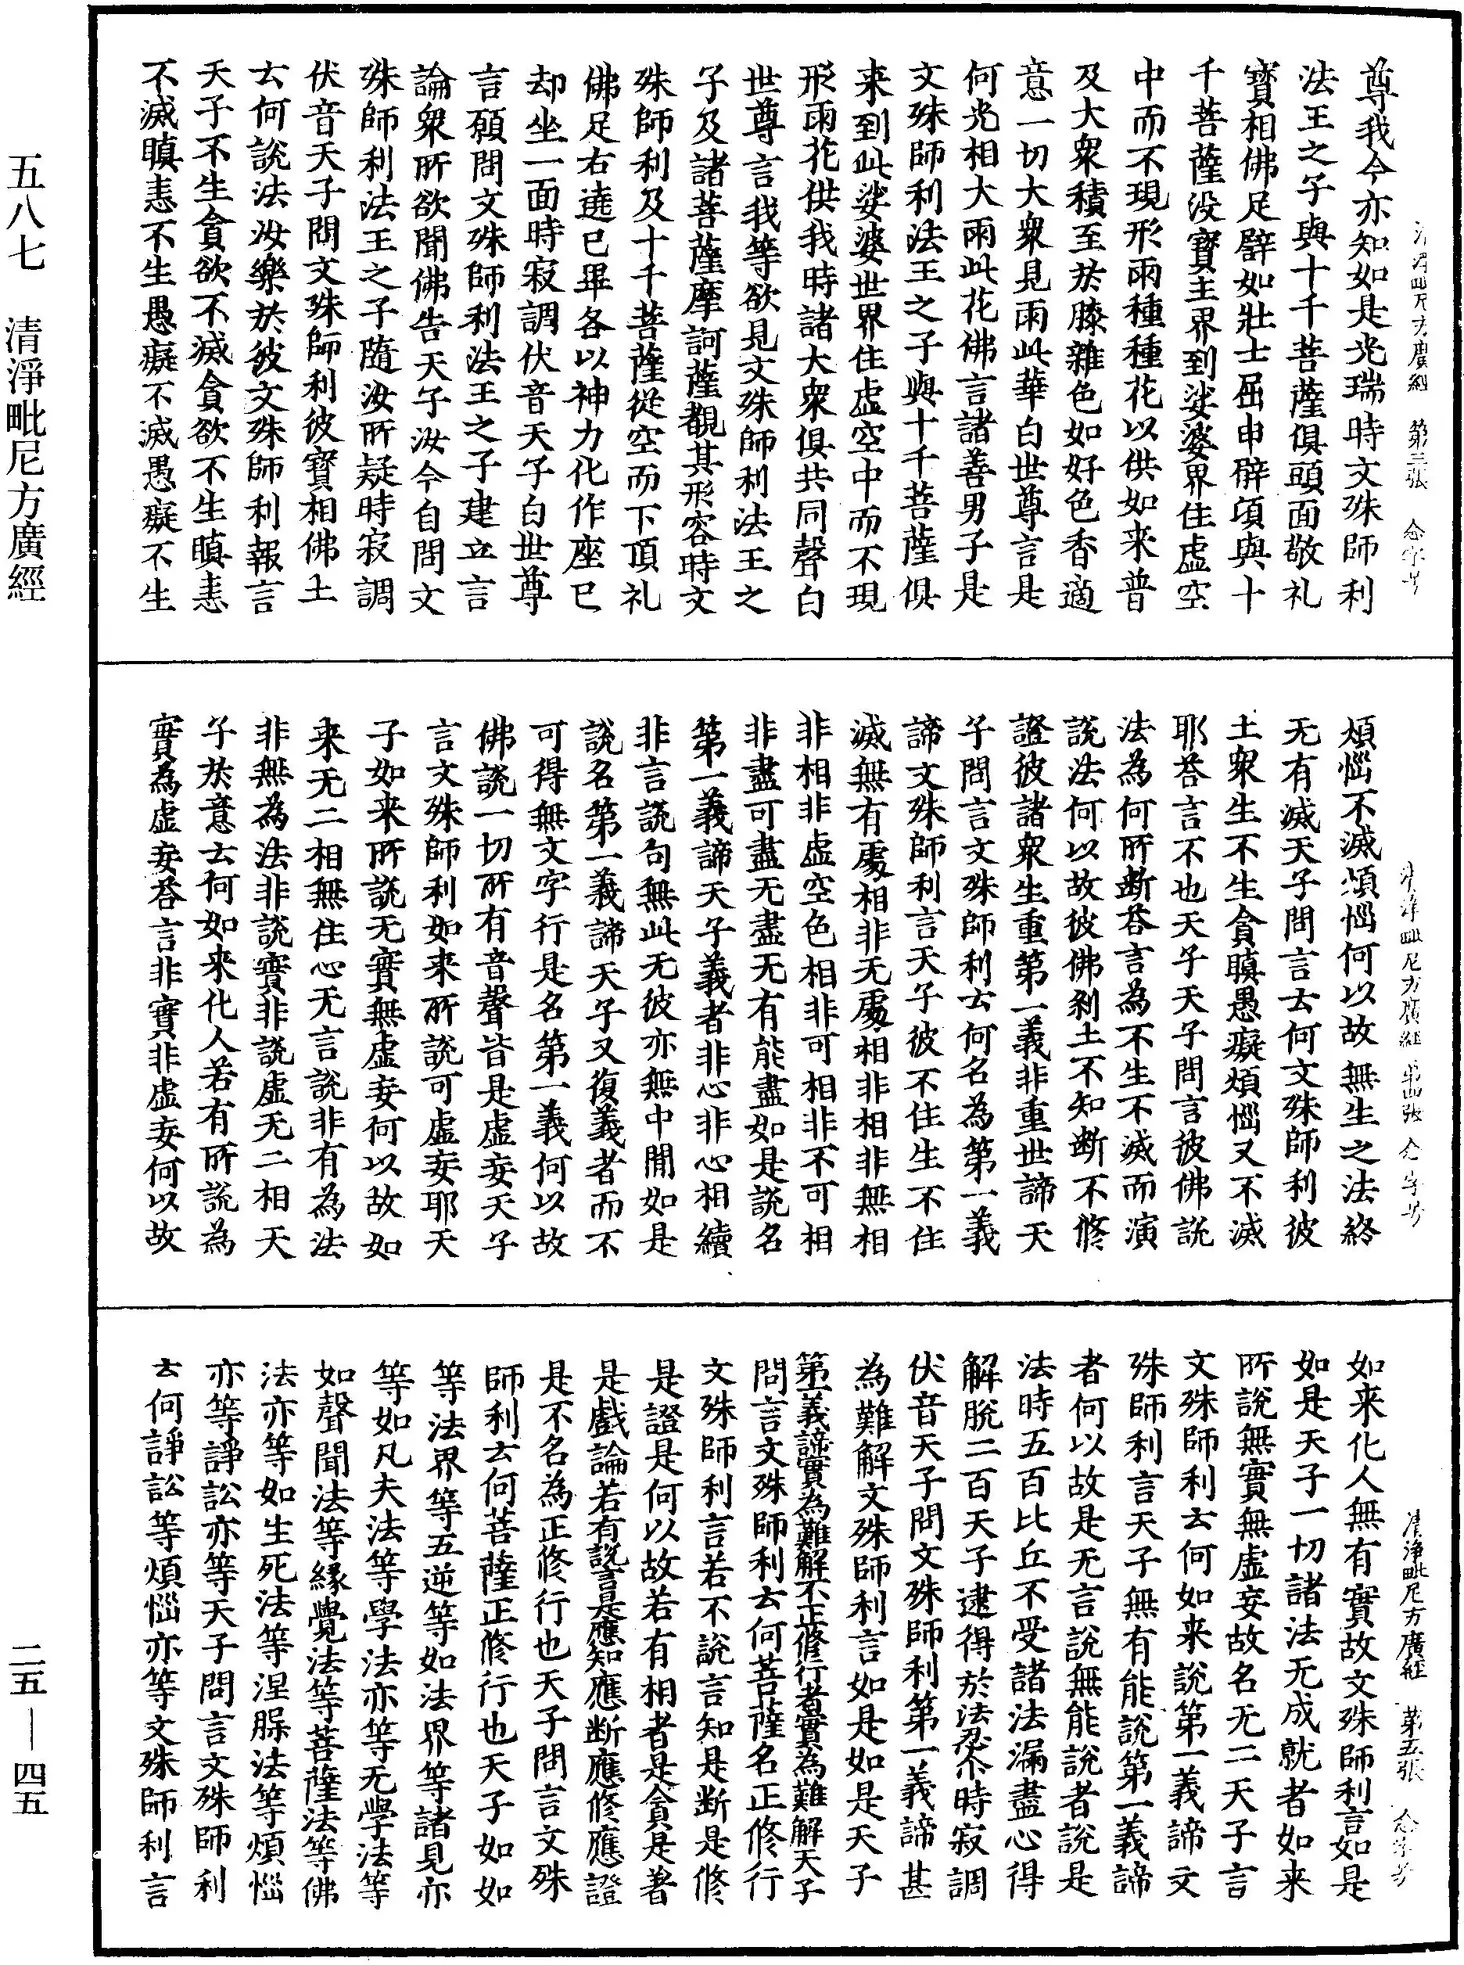 尊我今亦知如是光瑞時文殊師利
法王之子與十千菩薩俱頭面敬礼
寶相佛足譬如壯士屈申臂項與十
千菩薩没寶主界到娑婆界住虛空
中而不現形雨種種花以供如来普
及大衆積至於膝雜色如好色香適
意一切大衆見雨此華白世尊言是
何光相大雨此花佛言諸善男子是
文殊師利法王之子與十千菩薩俱
来到此娑婆世界住虛空中而不現
形雨花供我時諸大衆俱共同聲白
世尊言我等欲見文殊師利法王之
子及諸菩薩摩訶薩覩其形容時文
殊師利及十千菩薩從空而下頂礼
佛足右遶已畢各以神力化作座已
却坐一面時寂調伏音天子白世尊
言願問文殊師利法王之子建立言
論衆所欲聞佛告天子汝今自問文
殊師利法王之子隨汝所疑時寂調
伏音天子問文殊師利彼寶相佛土
云何說法汝樂於彼文殊師利報言
天子不生貪欲不滅貪欲不生瞋恚
不滅瞋恚不生愚癡不滅愚癡不生
清淨毗尼方廣經 第三張 念字号
煩惱不滅煩惱何以故無生之法終
无有滅天子問言云何文殊師利彼
土衆生不生貪瞋愚癡煩惱又不滅
耶荅言不也天子天子問言彼佛說
法為何所断荅言為不生不滅而演
說法何以故彼佛剎土不知断不修
證彼諸衆生重第一義非重世諦天
子問言文殊師利云何名為第一義
諦文殊師利言天子彼不住生不住
滅無有處相非无處相非相非無相
非相非虛空色相非可相非不可相
非盡可盡无盡无有能盡如是說名
第一義諦天子義者非心非心相續
非言說句無此无彼亦無中間如是
說名第一義諦天子又復義者而不
可得無文字行是名第一義何以故
佛說一切所有音聲皆是虛妄天子
言文殊師利如来所說可虛妄耶天
子如来所說无實無虛妄何以故如
来无二相無住心无言說非有為法
非無為法非說實非說虛无二相天
子於意云何如来化人若有所說為
實為虛妄荅言非實非虛妄何以故
清淨毗尼方廣經 第四張 念字号
如来化人無有實故文殊師利言如是
如是天子一切諸法无成就者如来
所說無實無虛妄故名无二天子言
文殊師利云何如来說第一義諦文
殊師利言天子無有能說第一義諦
者何以故是无言說無能說者說是
法時五百比丘不受諸法漏盡心得
解脫二百天子逮得於法忍尒時寂調
伏音天子問文殊師利第一義諦甚
為難解文殊師利言如是如是天子
第一義諦實為難解不正修行者實為難解天子
問言文殊師利云何菩薩名正修行
文殊師利言若不說言知是断是修
是證是何以故若有相者是貪是著
是戲論若有說言是應知應断應修應證
是不名為正修行也天子問言文殊
師利云何菩薩正修行也天子如如
等法界等五逆等如法界等諸見亦
等如凡夫法等學法亦等无學法等
如聲聞法等緣覺法等菩薩法等佛
法亦等如生死法等涅槃法等煩惱
亦等諍訟亦等天子問言文殊師利
云何諍訟等煩惱亦等文殊師利言
清淨毗尼方廣經 第五張 念字号
五八七 清淨毗尼方廣經
二五—四五